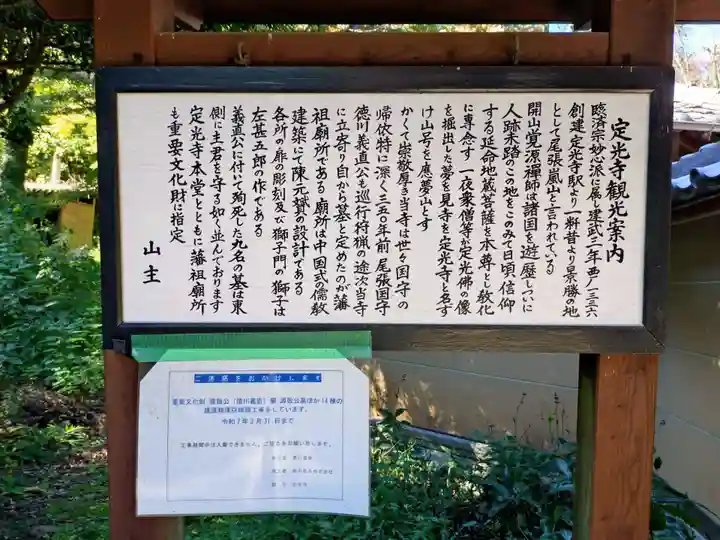 定光寺観光案内
臨済宗妙心派に属し建武三年西ノ一三三六
創建定光寺駅より一粁昔より景勝の地
として尾張嵐山と言われている
開山覚源禅師は諸国を遊歴しついに
人跡未踏のこの地をこのみて日頃信仰
する延命地蔵菩薩を本尊とし教化
に専念す一夜衆僧等が定光佛の像
を掘出した夢を見寺を定光寺と名ず
け山号を應夢山とす
かくて崇敬厚き当寺は世々国守の
帰依特に深く三五〇年前尾張国守
徳川義直公も巡行狩猟の途次当寺
に立寄り自から墓と定めたのが藩
祖廟所である廟所は中国式の儒教
建築にて陳元贇の設計である
各所の扉の彫刻及び獅子門の獅子は
左甚五郎の作である
義直公に付いて殉死した九名の墓は東
側に主君を守る如く並んでおります
定光寺本堂とともに藩祖廟所
も重要文化財に指定
山主
ご迷惑をおかけします
重要文化財 源敬公（徳川義直）廟 源敬公墓ほか14棟の
工事をしています。
令和7年3月31日まで
工事期間中は入場できません。ご協力をお願い致します。